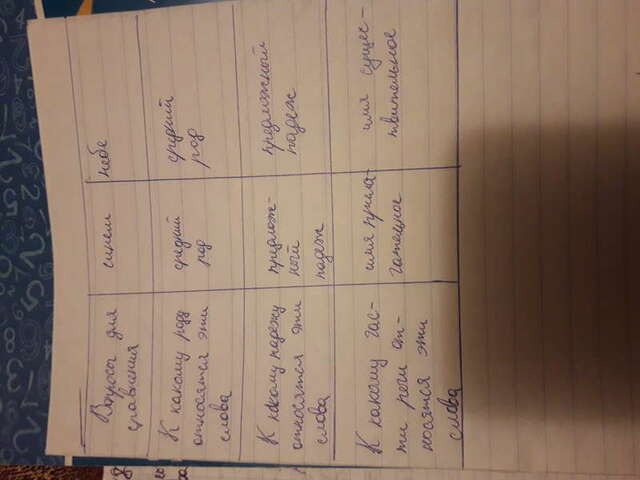 Вопросы для
сравнения
синем
небе
К какому роду
относятся эти
слова
средний
род
средний
род
К какому падежу
относятся эти
слова
предлож-
ной
падеж
предложный
падеж
К какому час-
ти речи от-
носятся эти
слова
имя прила-
гательное
имя сущес-
твительное